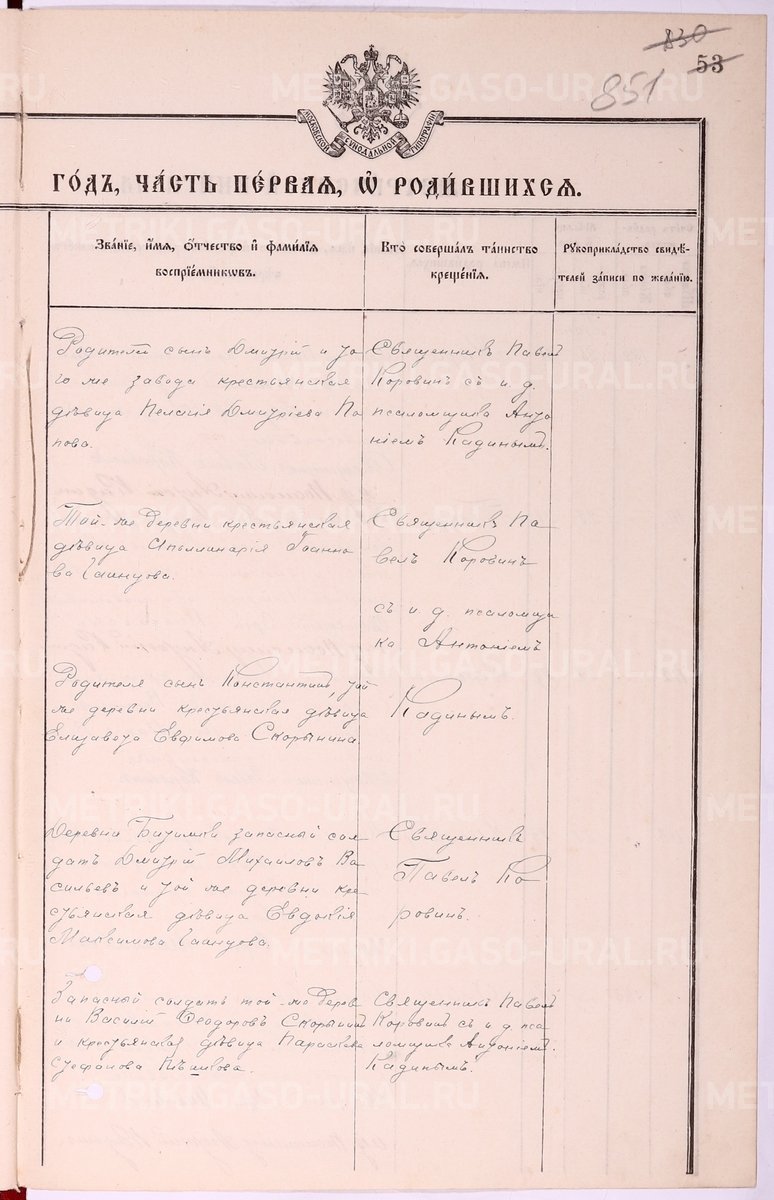 830
53
851
МОСКОВСКОЙ СѴНОДАЛЬНОЙ ТИПОГРАФІИ
ГО́ДЪ, ЧА́СТЬ ПЕ́РВАЯ, Ѽ РОДИ́ВШИХСЯ.
Зва́нїе, и҆́мѧ, ѻ҆́тчество и҆ фами́лїѧ
воспрїе́мникѡвъ.
Кто̀ соверша́лъ та́инство
креще́нїѧ.
Рꙋкоприкла́дство свидѣ́-
телей за́писи по жела́нїю.
Родителей сынъ Дмитрій и то-
го же завода крестьянская
дѣвица Пелагія Дмитріева По-
пова.
Священникъ Павелъ
Коровинъ съ и. д.
псаломщика Анто-
ніемъ Кадинымъ.
Той-же деревни крестьянская
дѣвица Аполлинарія Іоанно-
ва
Священникъ Па-
велъ Коровинъ
съ и. д. псаломщи-
ка Антоніемъ
Кадинымъ.
Родителя сынъ Константинъ, той
же деревни крестьянская дѣвица
Елизавета Евфимова Скорынина.
Деревни запасный сол-
датъ Дмитрій Михаиловъ Ва-
сильевъ и той же деревни кре-
стьянская дѣвица Евдокія
Максимова
Священникъ
Павелъ Ко-
ровинъ.
Запасный солдатъ той-же дерев-
ни Василій Ѳеодоровъ Скорынинъ
и крестьянская дѣвица Параскева
Стефанова
Священникъ Павелъ
Коровинъ съ и. д. пса-
ломщика Антоніемъ
Кадинымъ.
METRIKI.GASO-URAL.RU